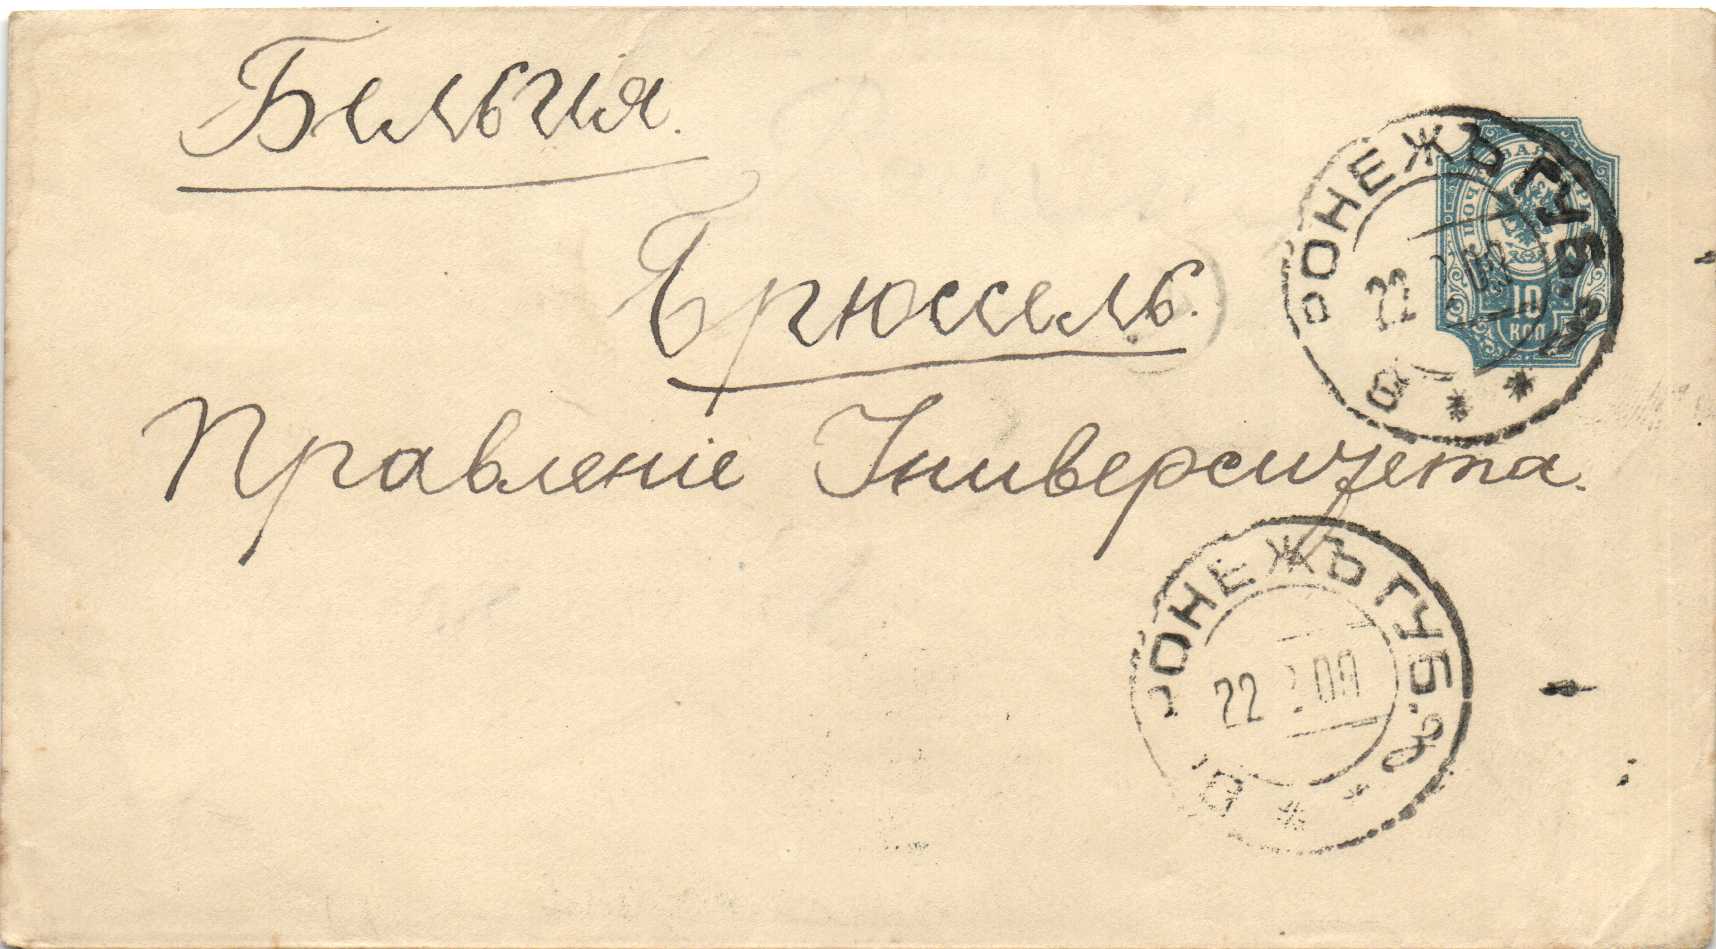 Бельгія.
Брюссель.
Правленіе Университета.
10
КОП
РОНЕЖЪ ГУБ.
22
РОНЕЖЪ ГУБ.
22 09